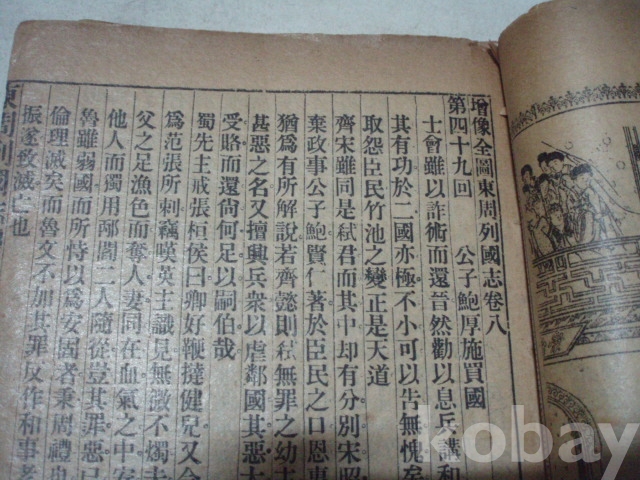 增像全圖東周列國志卷八
第四十九回　公子鮑厚施買國
士會雖以詐術而還晉然勸以息兵講和
其有功於二國亦極不小可以告無愧矣
取怨臣民竹池之變正是天道
齊宋雖同是弒君而其中却有分別宋昭
棄政事公子鮑賢仁著於臣民之口恩事
猶爲有所解說若齊懿則弒無罪之幼主
甚惡之名又擅興兵衆以虐鄰國其惡大
受賂而還尙何足以嗣伯哉
蜀先主戒張桓侯曰卿好鞭撻健兒又令
爲范張所刺竊嘆英主識見無微不燭
父之足漁色而奪人妻同在血氣之中安
他人而獨用邴閻二人隨從豈其罪惡已
魯雖弱國而所恃以爲安固者秉周禮也
倫理滅矣而魯文不加其罪反作和事老
振遂致滅亡也
東周列國志
kobay